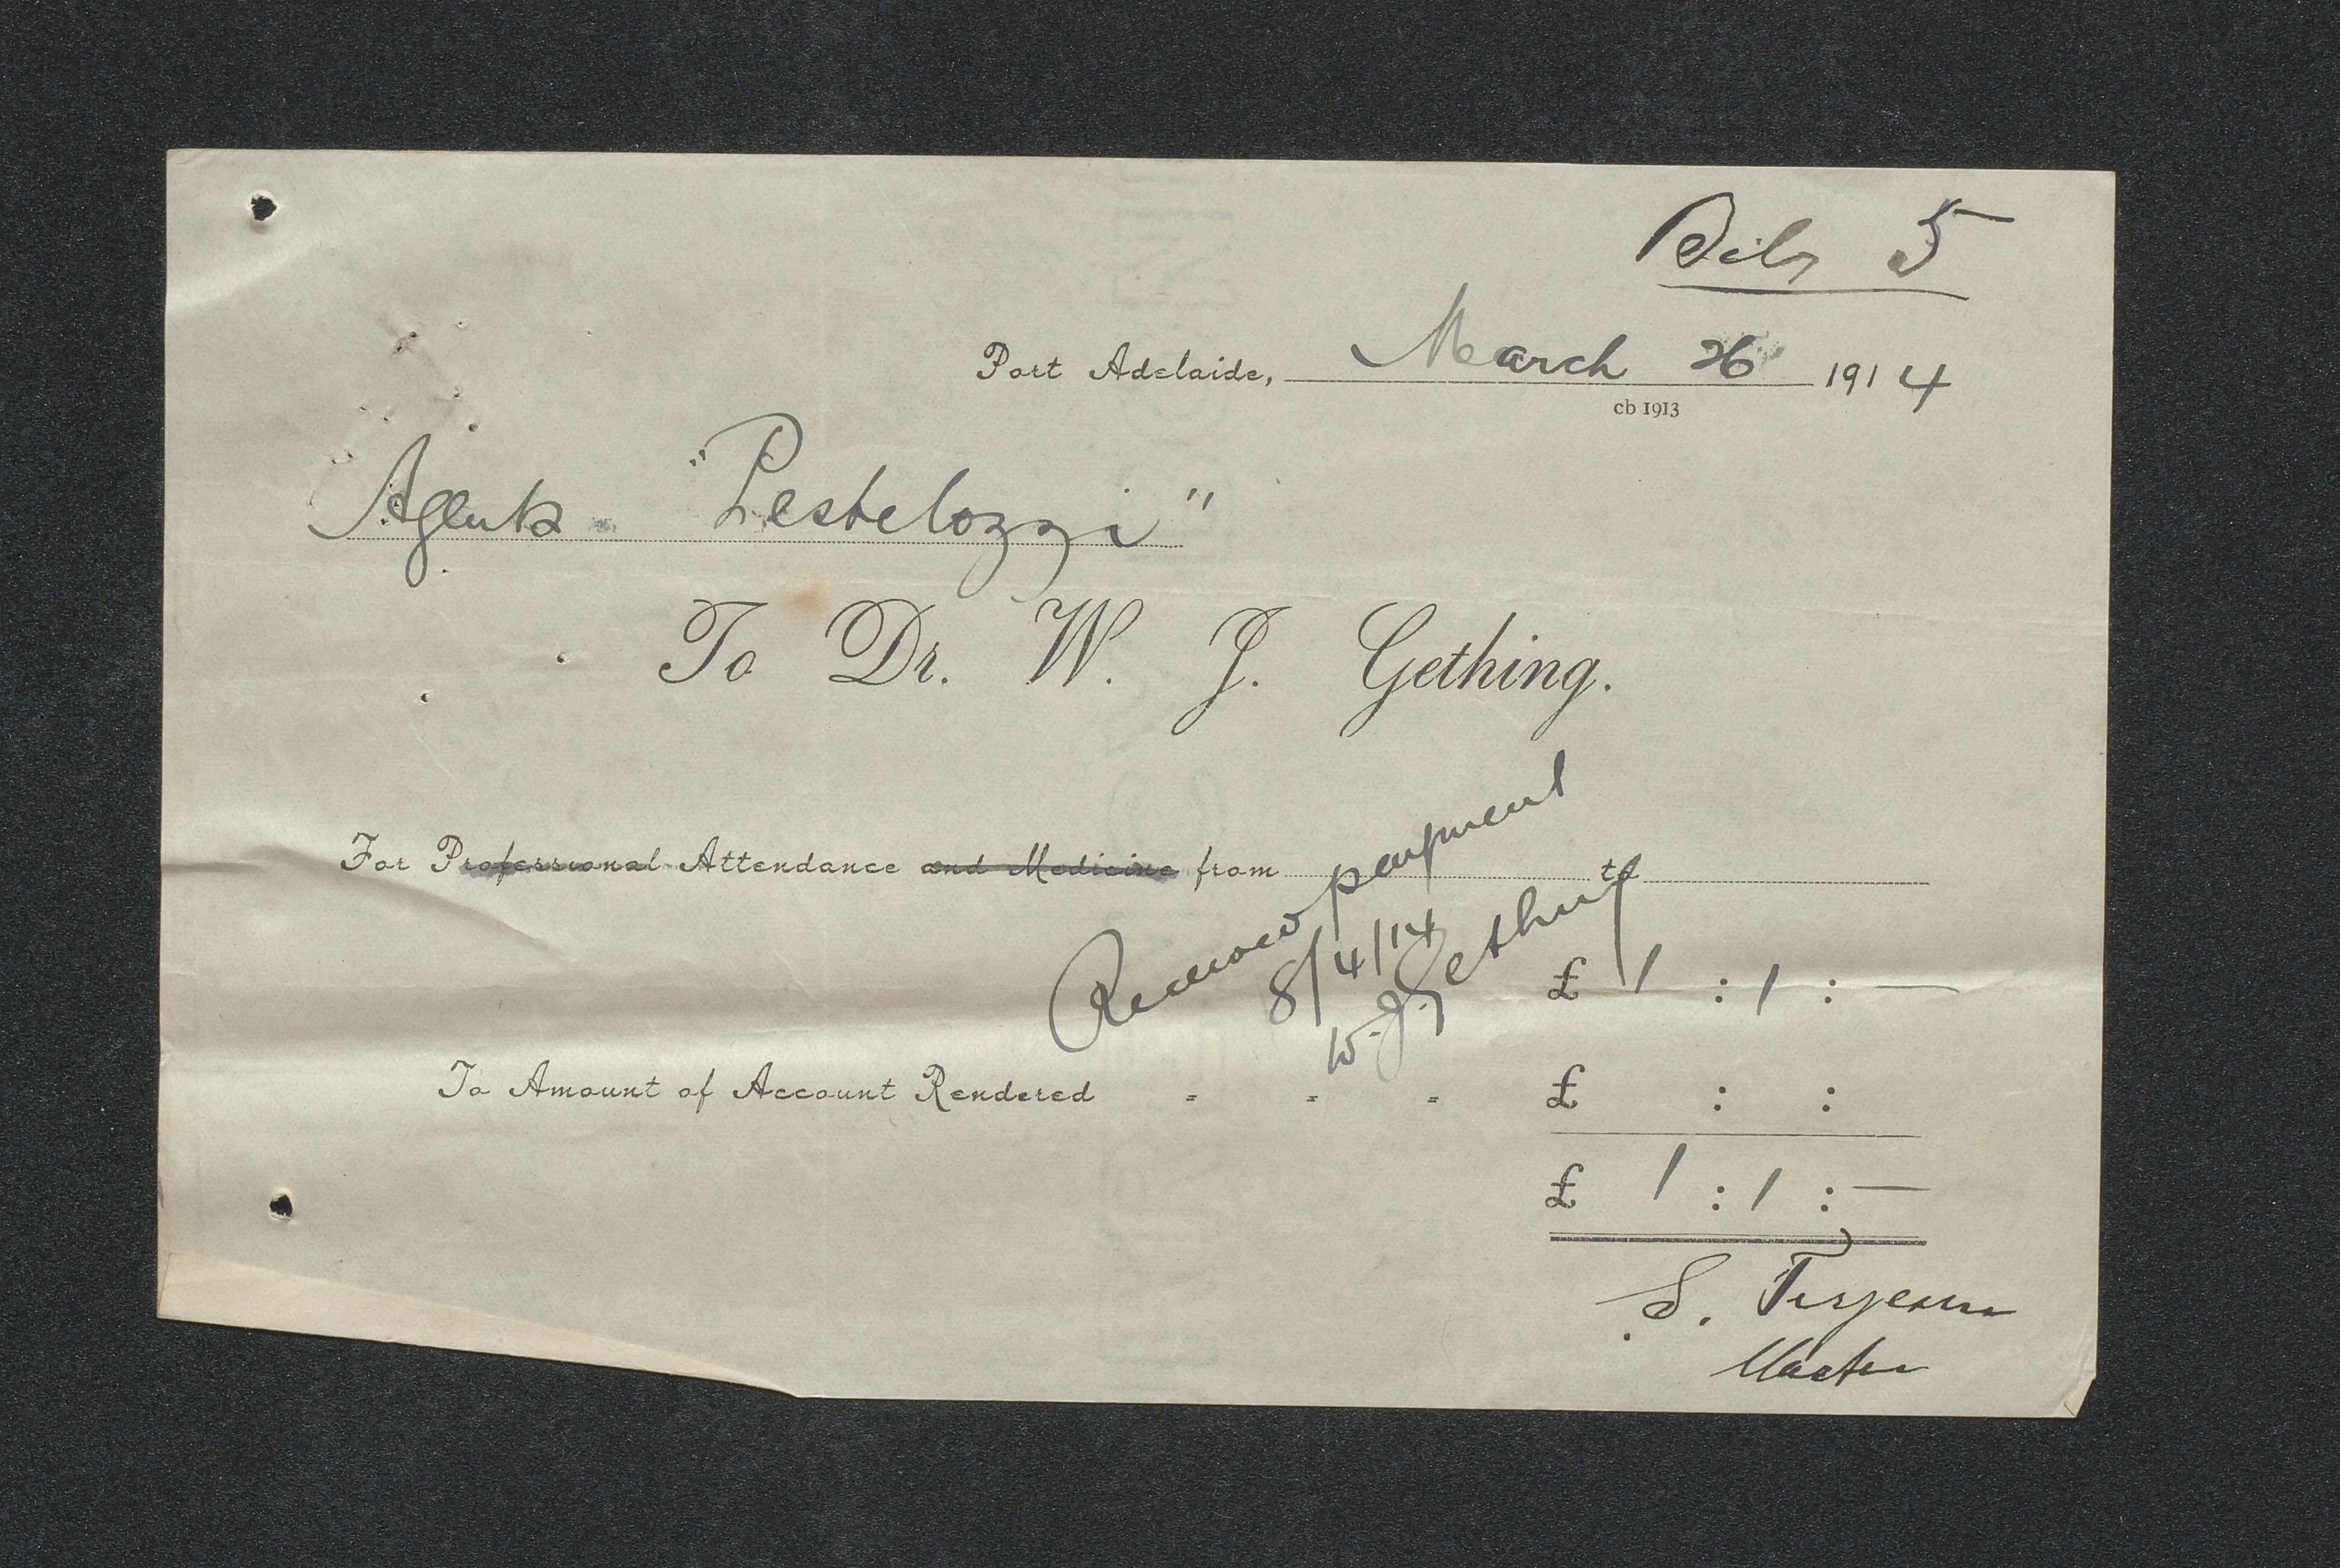 Bilag 5
Port Adelaide, March 26 1914
cb 1913
Agents "Pestelozzi"
To Dr. W. J. Gething.
For Professional Attendance and Medicine from to
Received payment
8/4/14
W. J. Gething
£ 1 : 1 : —
To Amount of Account Rendered - - - £ : :
£ 1 : 1 : —
S. Terjesen
Master